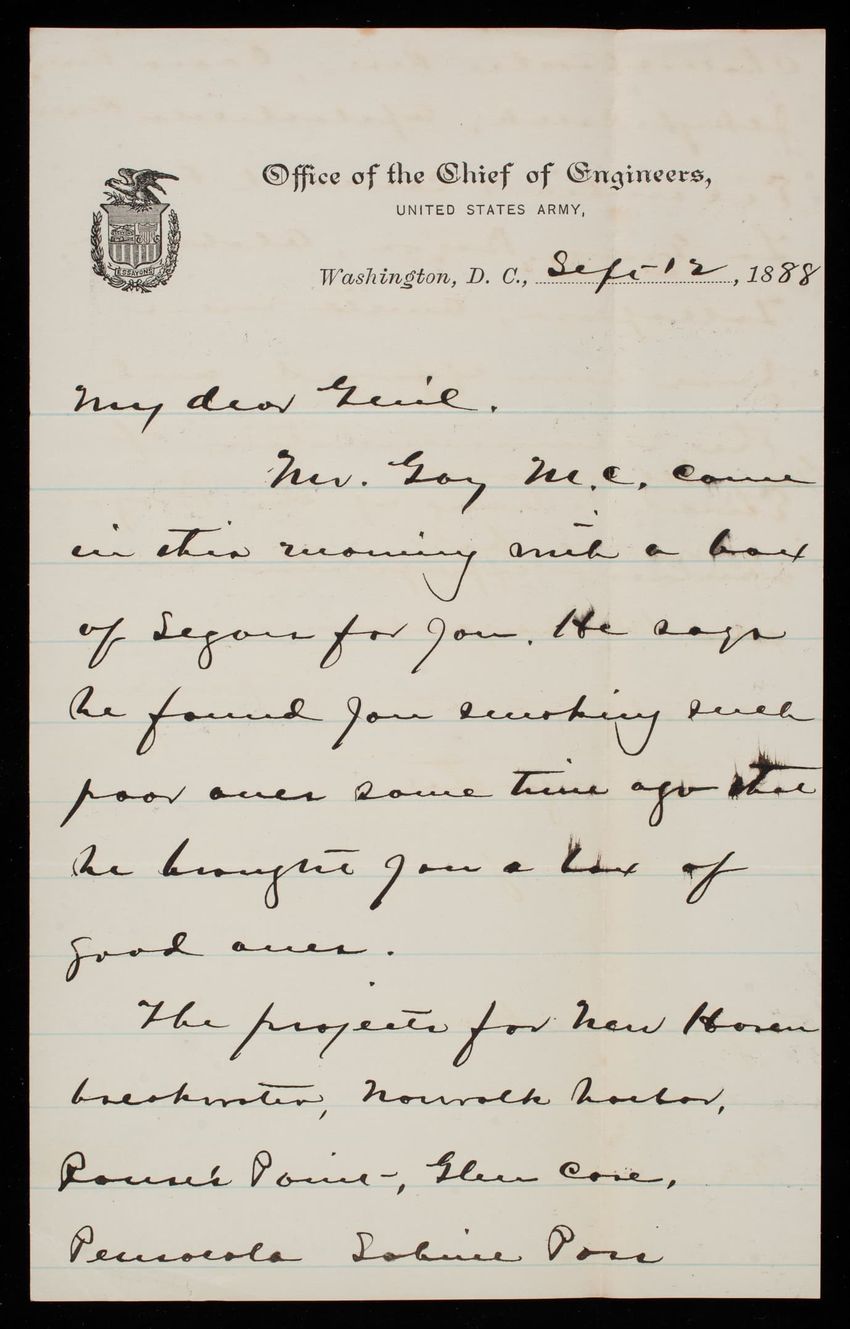 Office of the Chief of Engineers,
UNITED STATES ARMY,
ESSAYONS
Washington, D. C., Sept 12, 1888
My dear Gen'l.
Mr. Gay M.C. came
in this morning with a box
of Segars for you. He says
he found you smoking such
poor ones some time ago that
he brought you a box of
good ones.
The projects for New Haven
breakwater, Norwalk harbor,
Rouse's Point, Glen Cove,
Pensacola Sabine Pass